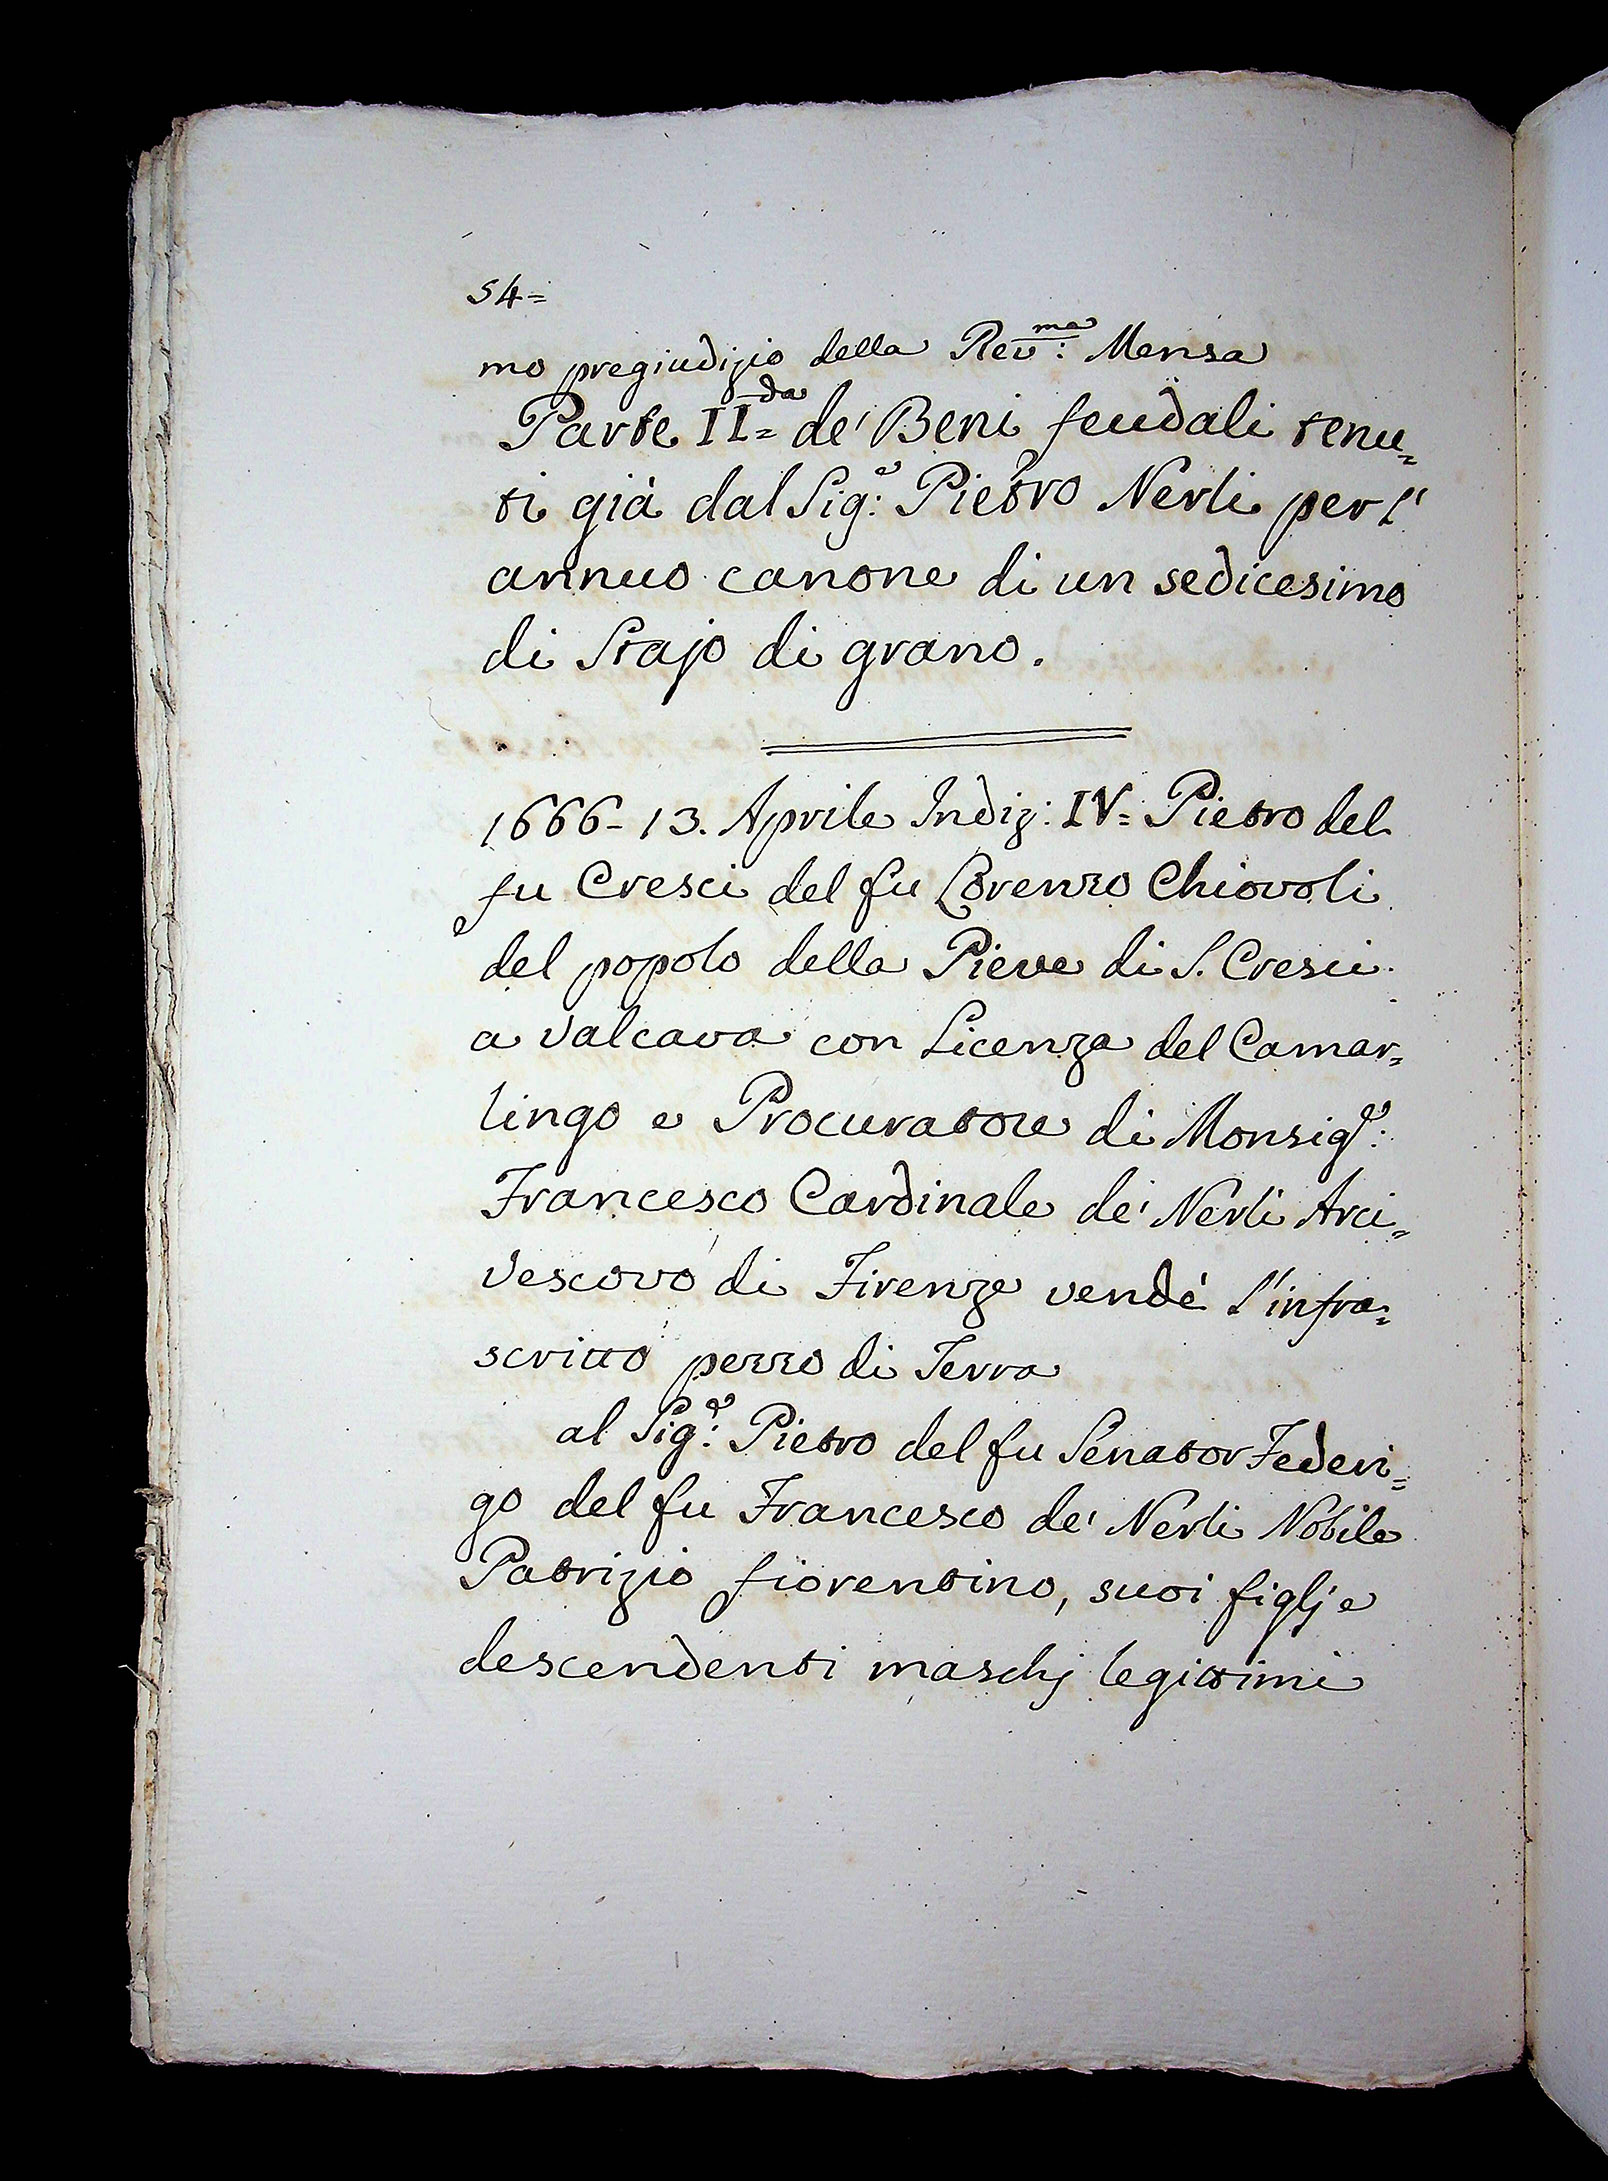 54=
mo pregiudizio della Rev:ma Mensa
Parte IIda= de' Beni feudali tenu=
ti già dal Sig:e Pietro Nerli per l'
annuo canone di un sedicesimo
di Stajo di grano.
1666- 13. Aprile Indiz: IV= Pietro del
fu Cresci del fu Lorenzo Chiovoli
del popolo della Pieve di S. Cresci
a Valcava con Licenza del Camar=
lingo e Procuratore di Monsig:e
Francesco Cardinale de' Nerli Arci=
vescovo di Firenze vendé l'infra=
scritto pezzo di Terra
al Sig:e Pietro del fu Senator Federi=
go del fu Francesco de' Nerli Nobile
Patrizio fiorentino, suoi figlj e
descendenti maschj legittimi